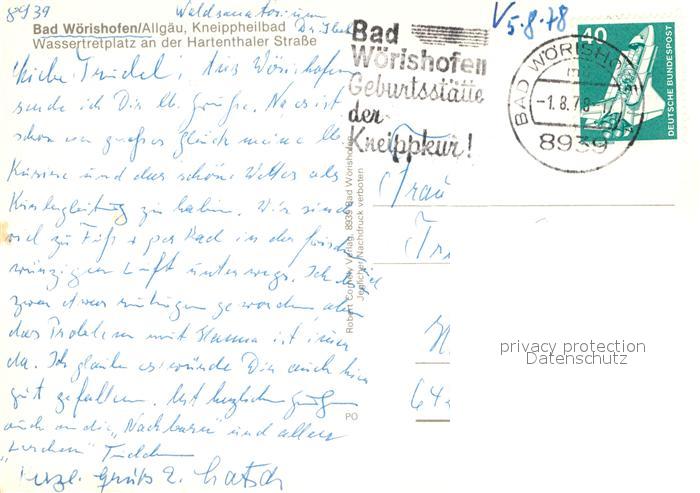 8939 Waldsanatorium
Bad Wörishofen/Allgäu, Kneippheilbad
Wassertretplatz an der Hartenthaler Straße
Liebe Trudel! Aus Wörishofen
sende ich Dir lb. Grüße. Na es ist
schon ein großes Glück meine lb.
und das schöne Wetter als
zu haben. Wir sind
viel zu Fuß + per Rad in der
würzigen Luft unterwegs. Ich bin
zwar etwas ruhiger geworden, aber
das Problem mit Hanna ist immer
da. Ich glaube es würde Dir auch hier
gut gefallen. Mit herzlichen Grüßen
auch an die „Nachbarn" und allen
herzl. Grüße
Robert Verlag, 8939 Bad Wörishofen
Jeglicher Nachdruck verboten
PO
Bad
Wörishofen
Geburtsstätte
der
Kneippkur!
V 5.8.78
BAD WÖRISHOFEN
-1.8.78
8939
40
DEUTSCHE BUNDESPOST
Frau
privacy protection
Datenschutz